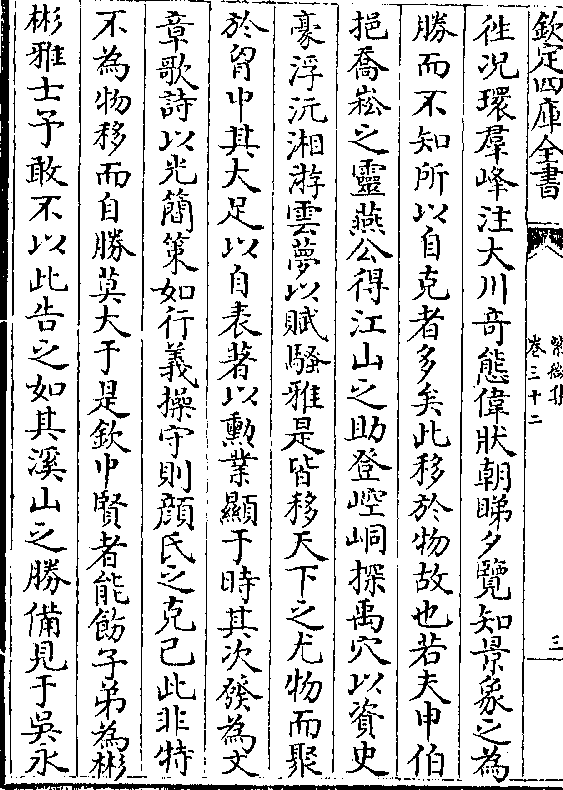 欽定四庫全書
紫微集
卷三十二
三
徃况環羣峰注大川竒態偉狀朝睇夕覽知景象之為
勝而不知所以自克者多矣此移於物故也若夫申伯
挹喬崧之靈燕公得江山之助登崆峒探禹穴以資史
豪浮沅湘游雲夢以賦騷雅是皆移天下之尤物而聚
於胷中其大足以自表著以勳業顯于時其次發為文
章歌詩以光簡策如行義操守則顔氏之克己此非特
不為物移而自勝莫大于是欽中賢者能飭子弟為彬
彬雅士予敢不以此告之如其溪山之勝備見于吳永